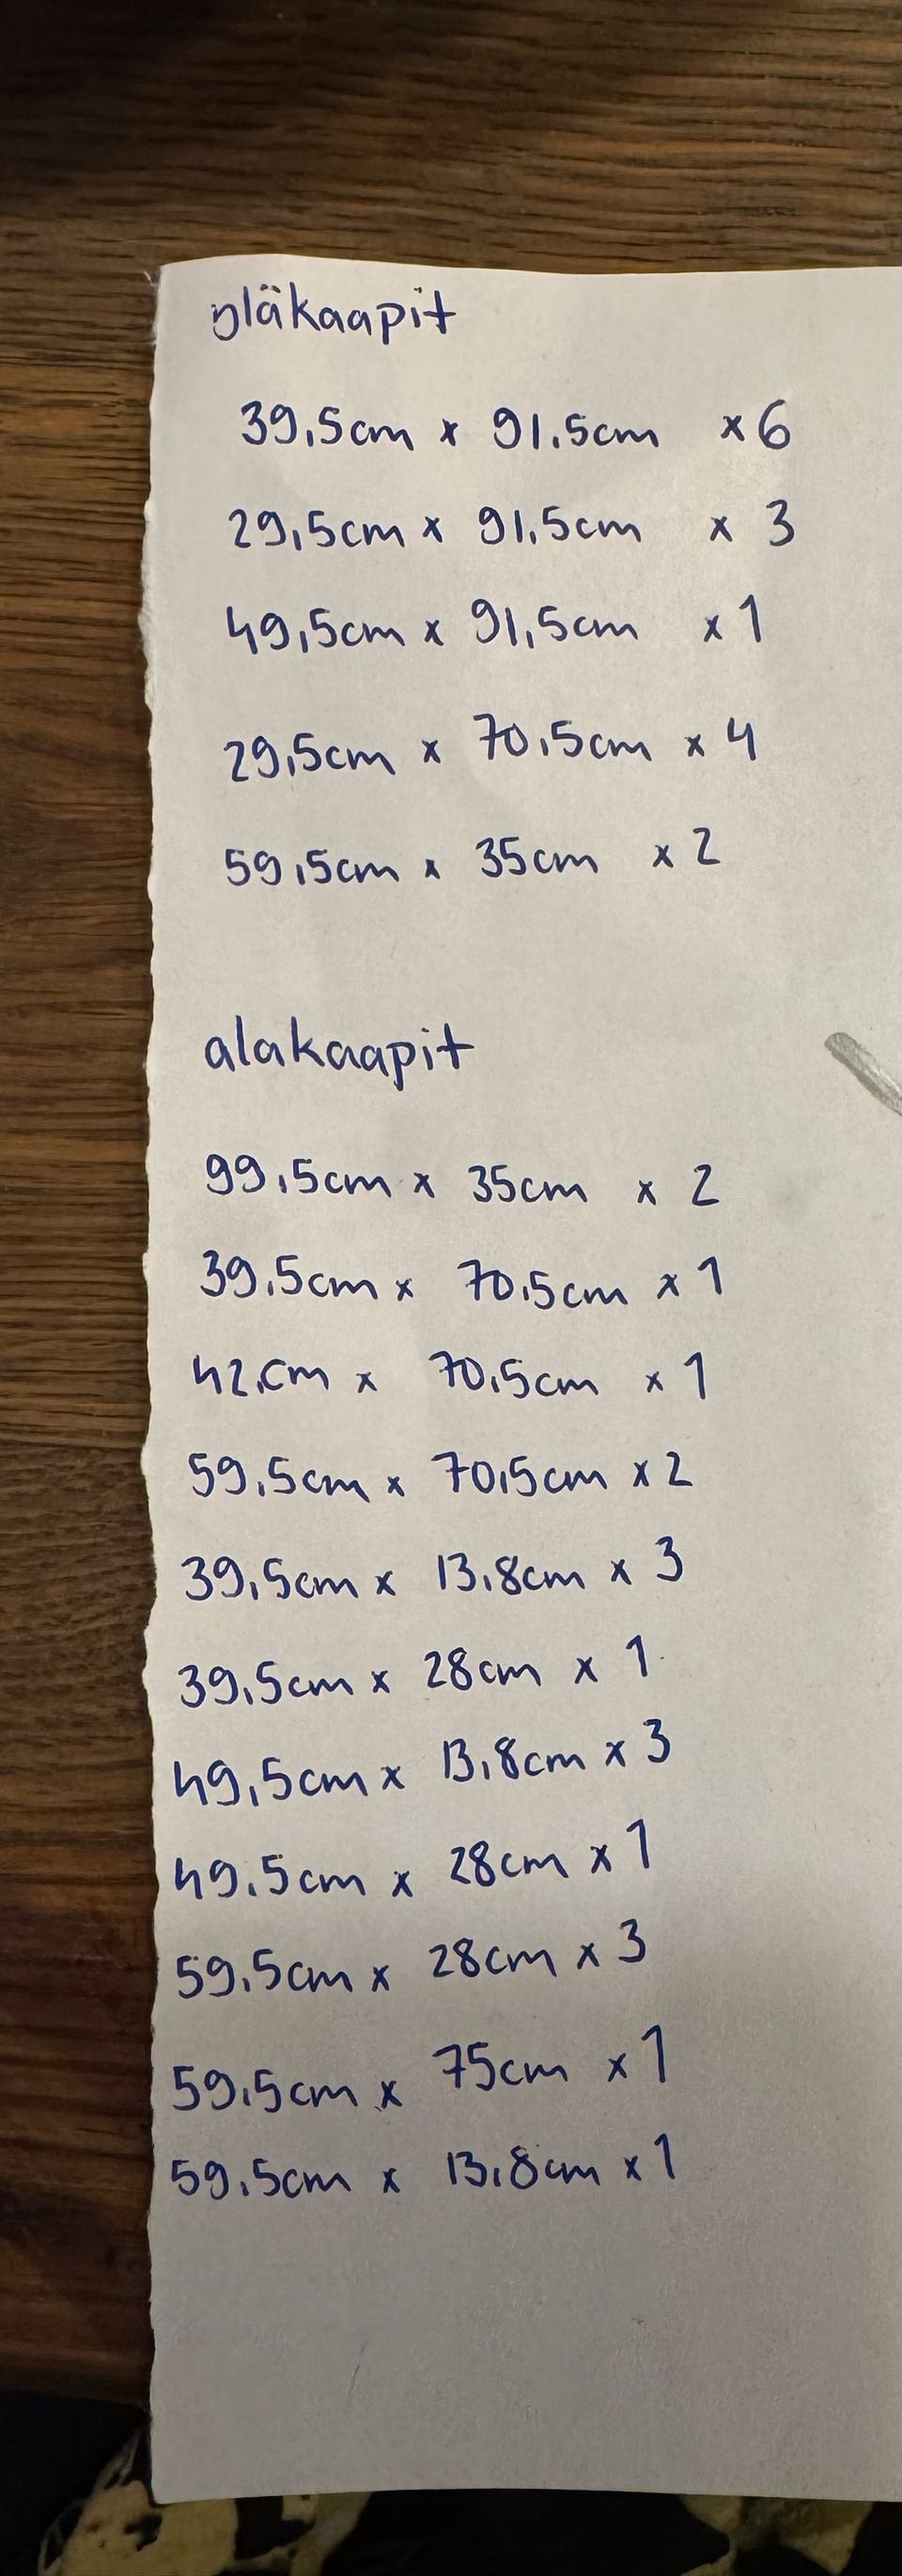 yläkaapit
39,5cm x 91.5cm x6
29,5cm x 91,5cm x 3
49,5cm x 91,5cm x1
29,5cm x 70,5cm x 4
59,5cm x 35cm x2
alakaapit
99,5cm x 35cm x 2
39,5cm x 70,5cm x1
42,cm x 70,5cm x1
59,5cm x 70,5cm x2
39,5cm x 13,8cm x 3
39,5cm x 28cm x 1
49,5cm x 13,8cm x 3
49,5cm x 28cm x1
59,5cm x 28cm x 3
59,5cm x 75cm x1
59,5cm x 13,8cm x1